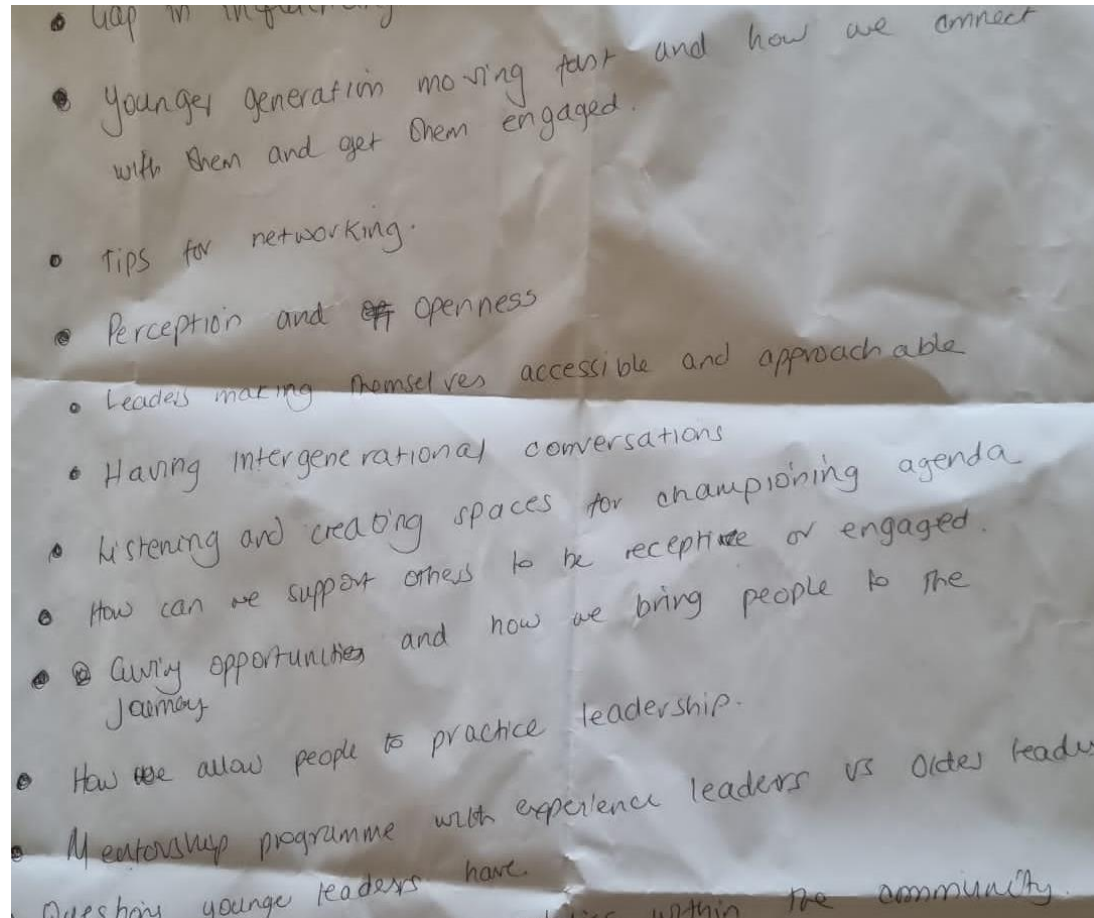 • Gap in influencing
• Younger generation moving fast and how we connect
with them and get them engaged.
• Tips for networking.
• Perception and openness
• Leaders making themselves accessible and approachable
• Having Intergenerational conversations
• Listening and creating spaces for championing agenda
• How can we support others to be receptive or engaged.
• Giving opportunities and how we bring people to the
Journey
• How we allow people to practice leadership.
• Mentorship programme with experience leaders vs Older
Questions younge leaders have.
within the community.